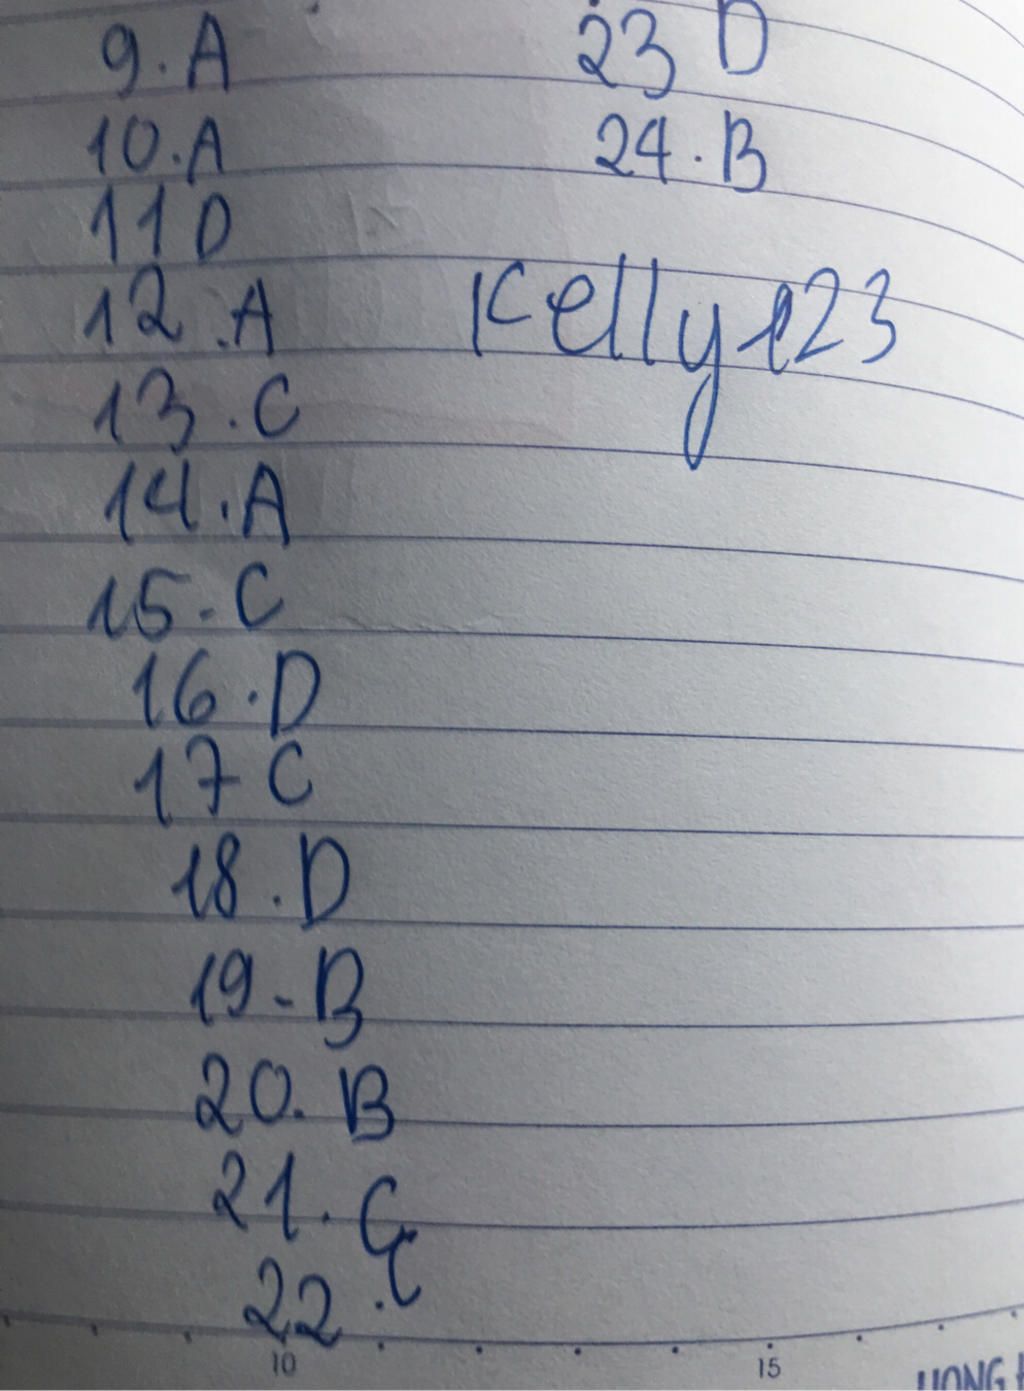 9. A
10. A
11 D
12. A
13. C
14. A
15. C
16. D
17 C
18. D
19 - B
20. B
21. C
22. C
23 D
24. B
Kelly123
10 15